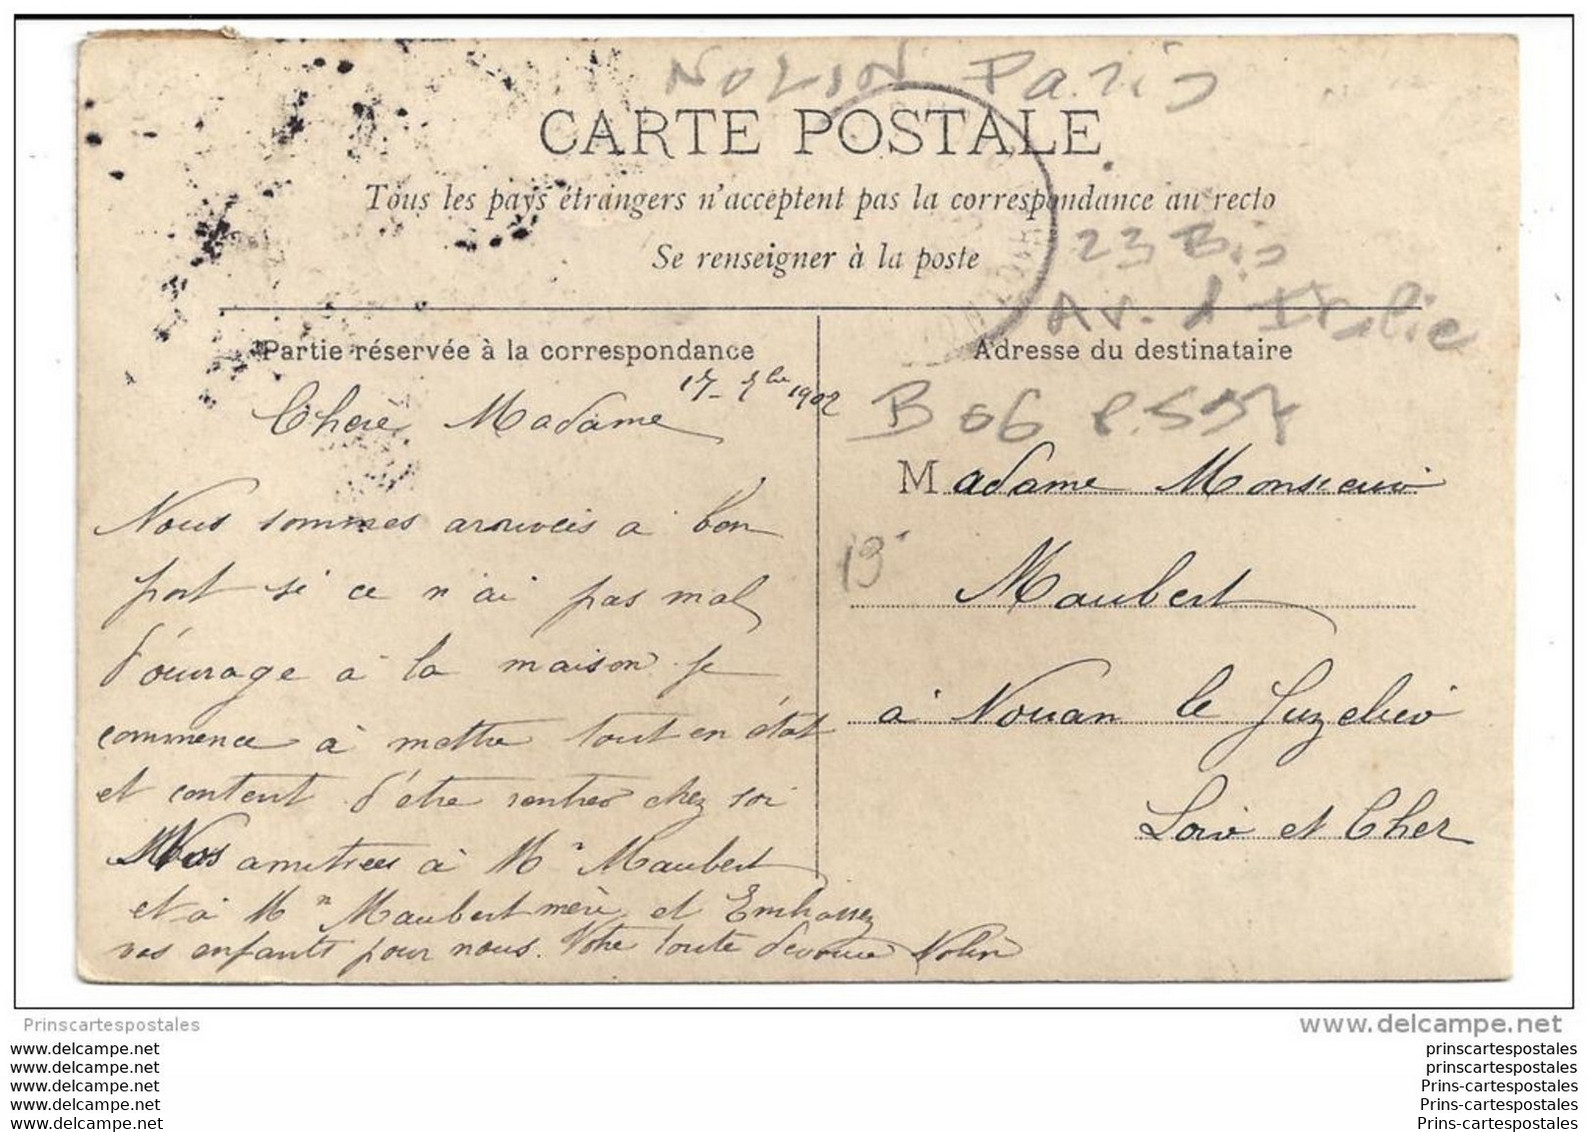 NOLIN Paris
CARTE POSTALE
Tous les pays étrangers n'acceptent pas la correspondance au recto
Se renseigner à la poste
23 Bis
Av. d'Italie
Partie réservée à la correspondance
Adresse du destinataire
1902
B 06 P. 557
Chère Madame
Nous sommes arrivées a bon
port si ce n'ai pas mal
d'ouvrage à la maison je
commence à mettre tout en état
et content d'être rentrer chez soi
Nos amitiées à Mr Maubert
et à Mm Maubert mère et Embrassez
vos enfants pour nous. Votre toute devouée Nolin
Madame Monsieur
13
Maubert
à Nouan le Fuzelier
Loir et Cher
Prinscartespostales
www.delcampe.net
www.delcampe.net
www.delcampe.net
www.delcampe.net
www.delcampe.net
www.delcampe.net
prinscartespostales
prinscartespostales
Prins-cartespostales
Prins-cartespostales
Prins-cartespostales